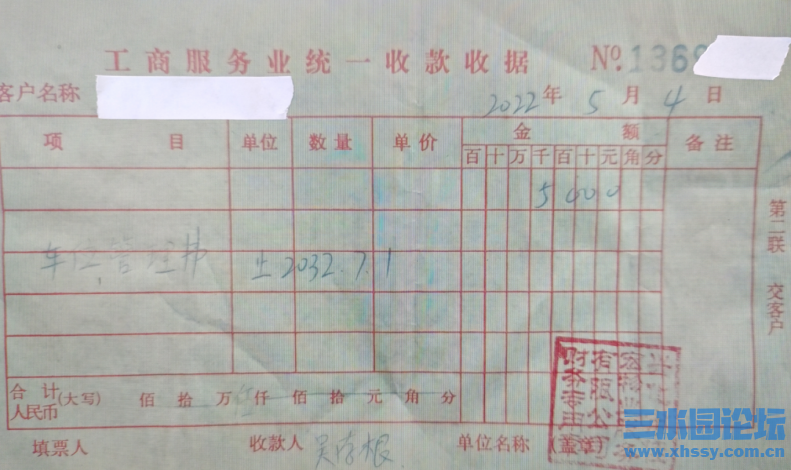 工商服务业统一收款收据 №1369
客户名称 2022年5月4日
项目 单位 数量 单价 金额 备注
百十万千百十元角分
5000
车位管理费 上2032.7.1
合计人民币(大写) 佰拾万伍仟佰拾元角分
填票人 收款人 单位名称(盖章)
第二联 交客户
有限公司
财务专用
三水园论坛
www.xhssy.com.cn